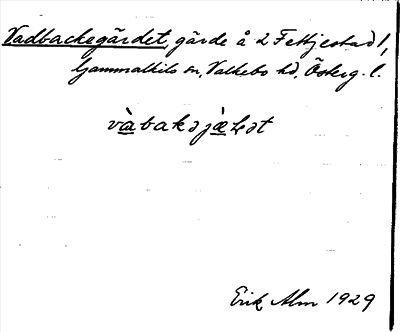 Vadbackegärdet, gärde å 2 Fettjestad 1,
Gammalkils sn, Valkebo hd, Österg. l.
Erik Alm 1929